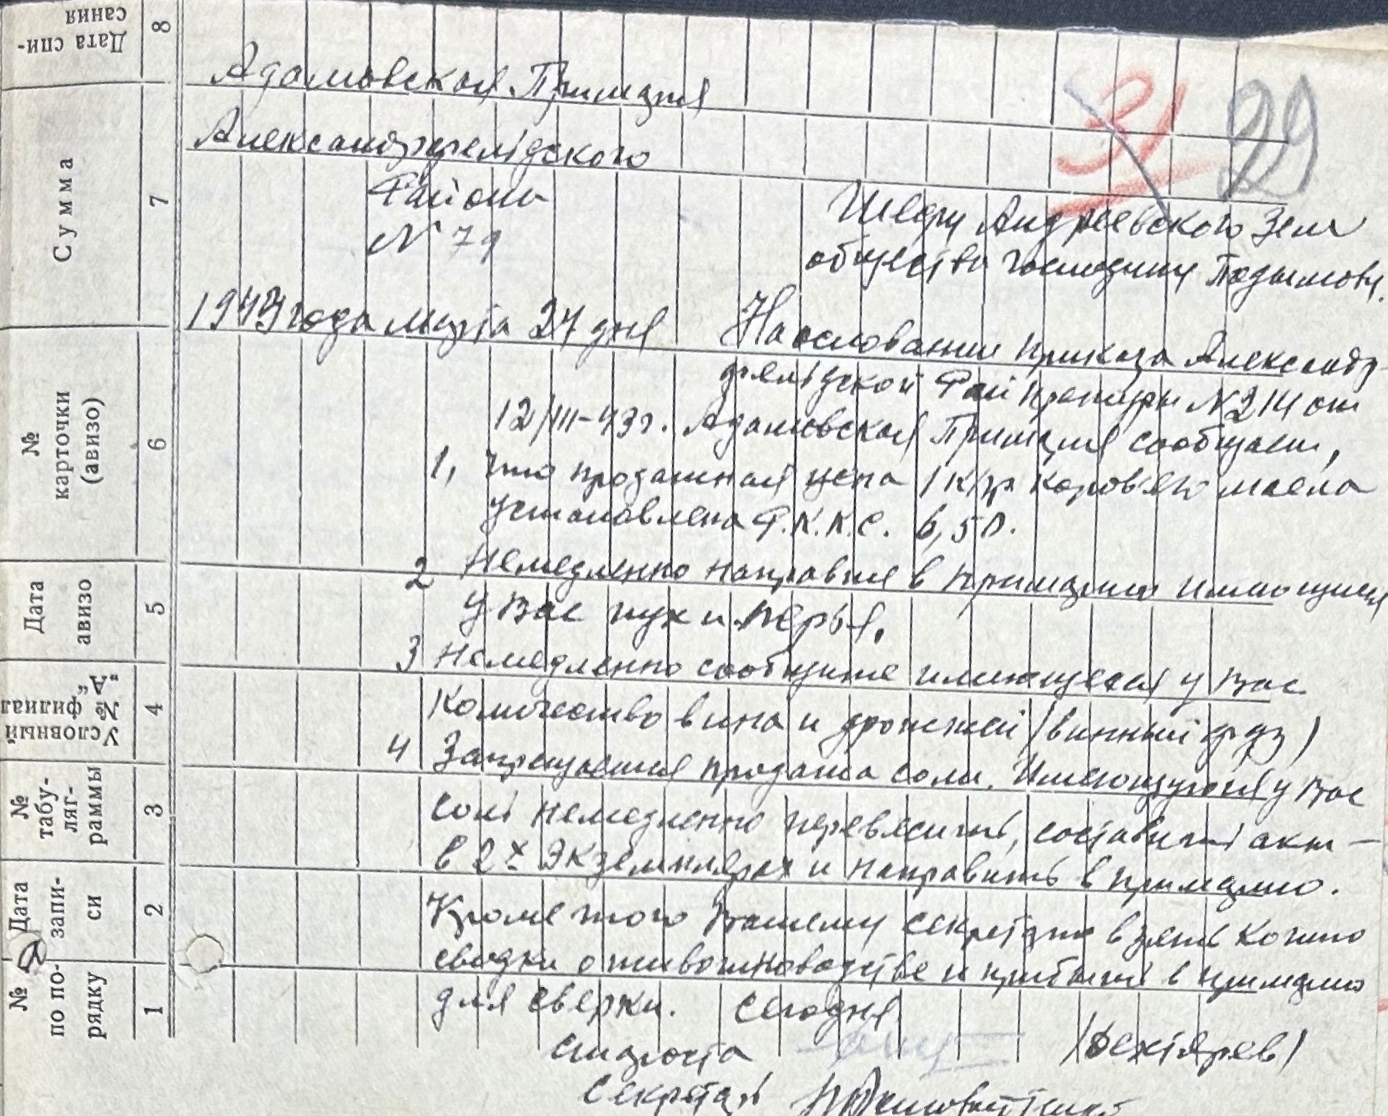 Дата спи-
сания
8
Сумма
7
№
карточки
(авизо)
6
Дата
авизо
5
Условный
№ филиал
„А“
4
№
табу-
ляг-
раммы
3
Дата
запи-
си
2
№
по по-
рядку
1
31 29
Адамовская Примария
Александрфельдского
Района
N 79
Шефу Андреевского Зем
общества господину
1943 года марта 24 дня
На основании приказа Александр
фельдской Рай претуры N 214 от
12/III-43 г. Адамовская Примария сообщает,
1, что продажная цена 1 к/гр коровьего масла
установлена Р.К.К.С. 6,50.
2 Немедленно направте в примарию имеющиеся
у Вас пух и перья.
3 Немедленно сообщите имеющееся у Вас
Количество вина и дрожжей (винный
4 Запрещается продажа соли. Имеющуюся у Вас
соль немедленно перевесить, составить акт —
в 2х Экземплярах и направить в примарию.
Кроме того Вашему секретарю взять Копию
сводки о животноводстве и прибыть в примарию
для сверки. Сегодня.
староста (Дехтярев)
Секретарь